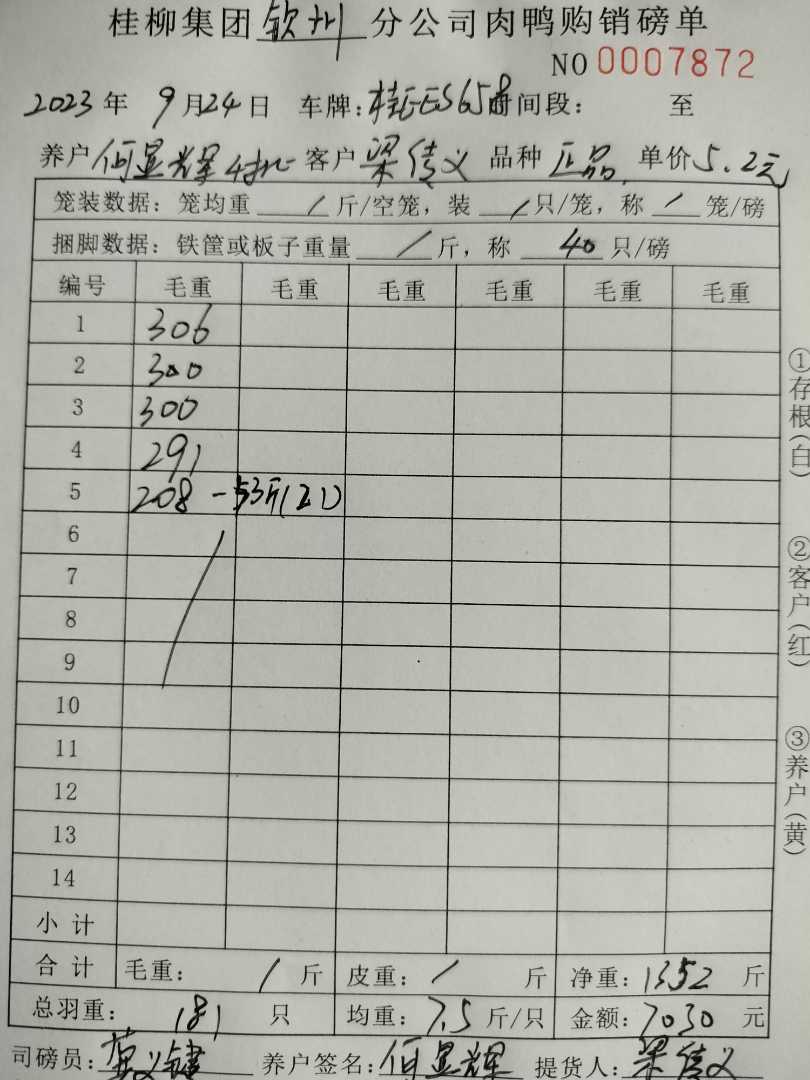 桂柳集团钦州分公司肉鸭购销磅单
NO 0007872
2023年 9月24日 车牌:桂EES658时间段: 至
养户 何显辉 客户 梁信义 品种 正品 单价5.2元
笼装数据: 笼均重 / 斤/空笼, 装 / 只/笼, 称 / 笼/磅
捆脚数据: 铁筐或板子重量 / 斤, 称 40 只/磅
编号 毛重 毛重 毛重 毛重 毛重 毛重
1 306
2 300
3 300
4 291
5 208 -53斤(21)
6
7
8
9
10
11
12
13
14
小计
合计 毛重: / 斤 皮重: / 斤 净重: 1352 斤
总羽重: 181 只 均重: 7.5 斤/只 金额: 7030 元
司磅员: 养户签名: 何显辉 提货人: 梁信义
①存根(白)
②客户(红)
③养户(黄)